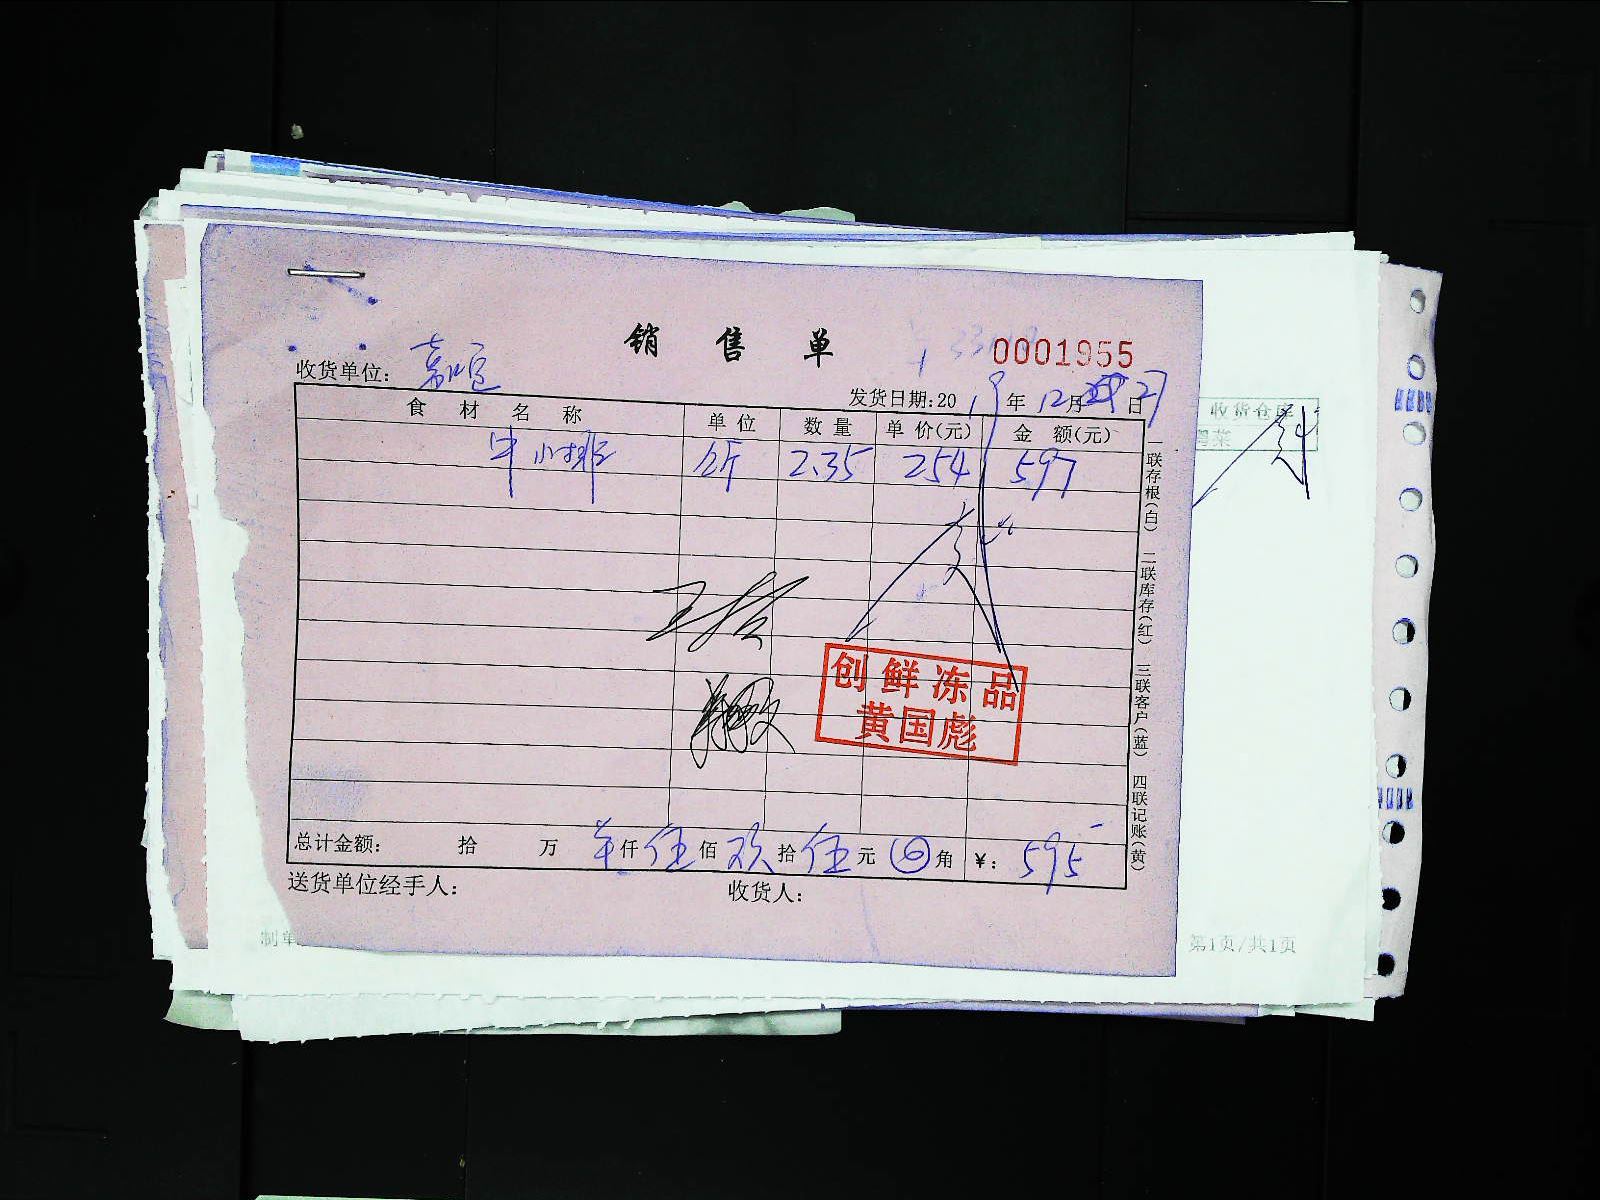 销售单
0001955
收货单位:
发货日期:2019年12月27日
收货仓库
食材名称 单位 数量 单价(元) 金额(元)
牛小排 斤 2.35 254 597
一联存根(白) 二联库存(红) 三联客户(蓝) 四联记账(黄)
创鲜冻品
黄国彪
总计金额: 拾 万 仟伍佰玖拾伍元 角 ¥: 595
送货单位经手人: 收货人:
制单
第1页/共1页